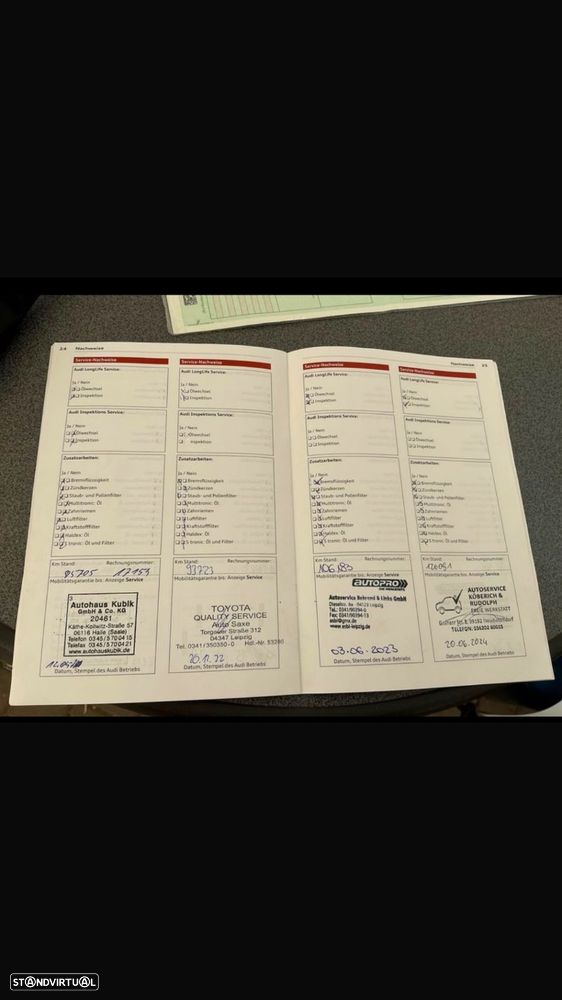 24 Nachweise
Service-Nachweise
Audi LongLife Service:
Ja / Nein
Ölwechsel
Inspektion
Audi Inspektions Service:
Ja / Nein
Ölwechsel
Inspektion
Zusatzarbeiten:
Ja / Nein
Bremsflüssigkeit
Zündkerzen
Staub- und Pollenfilter
Multitronic: Öl
Zahnriemen
Luftfilter
Kraftstofffilter
Haldex: Öl
S tronic: Öl und Filter
Km Stand: Rechnungsnummer:
85705 17153
Mobilitätsgarantie bis: Anzeige Service
3
Autohaus Kubik
GmbH & Co. KG
20461
Käthe-Kollwitz-Straße 57
06116 Halle (Saale)
Telefon 0345/5 70 04 15
Telefax 0345/5 70 04 21
www.autohauskubik.de
Datum, Stempel des Audi Betriebs
Service-Nachweise
Audi LongLife Service:
Ja / Nein
Ölwechsel
Inspektion
Audi Inspektions Service:
Ja / Nein
Ölwechsel
Inspektion
Zusatzarbeiten:
Ja / Nein
Bremsflüssigkeit
Zündkerzen
Staub- und Pollenfilter
Multitronic: Öl
Zahnriemen
Luftfilter
Kraftstofffilter
Haldex: Öl
S tronic: Öl und Filter
Km Stand: Rechnungsnummer:
93723
Mobilitätsgarantie bis: Anzeige Service
TOYOTA
QUALITY SERVICE
Auto Saxe
Torgauer Straße 312
04347 Leipzig
Tel. 0341/350350-0 Hdl.-Nr. 53280
20.11.22
Datum, Stempel des Audi Betriebs
Service-Nachweise
Audi LongLife Service:
Ja / Nein
Ölwechsel
Inspektion
Audi Inspektions Service:
Ja / Nein
Ölwechsel
Inspektion
Zusatzarbeiten:
Ja / Nein
Bremsflüssigkeit
Zündkerzen
Staub- und Pollenfilter
Multitronic: Öl
Zahnriemen
Luftfilter
Kraftstofffilter
Haldex: Öl
S tronic: Öl und Filter
Km Stand: Rechnungsnummer:
106183
Mobilitätsgarantie bis: Anzeige Service
AUTOPRO
Autoservice Behrend & Links GmbH
03.06.2023
Datum, Stempel des Audi Betriebs
Nachweise 25
Service-Nachweise
Audi LongLife Service:
Ja / Nein
Ölwechsel
Inspektion
Audi Inspektions Service:
Ja / Nein
Ölwechsel
Inspektion
Zusatzarbeiten:
Ja / Nein
Bremsflüssigkeit
Zündkerzen
Staub- und Pollenfilter
Multitronic: Öl
Zahnriemen
Luftfilter
Kraftstofffilter
Haldex: Öl
S tronic: Öl und Filter
Km Stand: Rechnungsnummer:
Mobilitätsgarantie bis: Anzeige Service
AUTOSERVICE
KOBERICH &
RUDOLPH
FREIE WERKSTATT
20.06.2024
Datum, Stempel des Audi Betriebs
STANDVIRTUAL